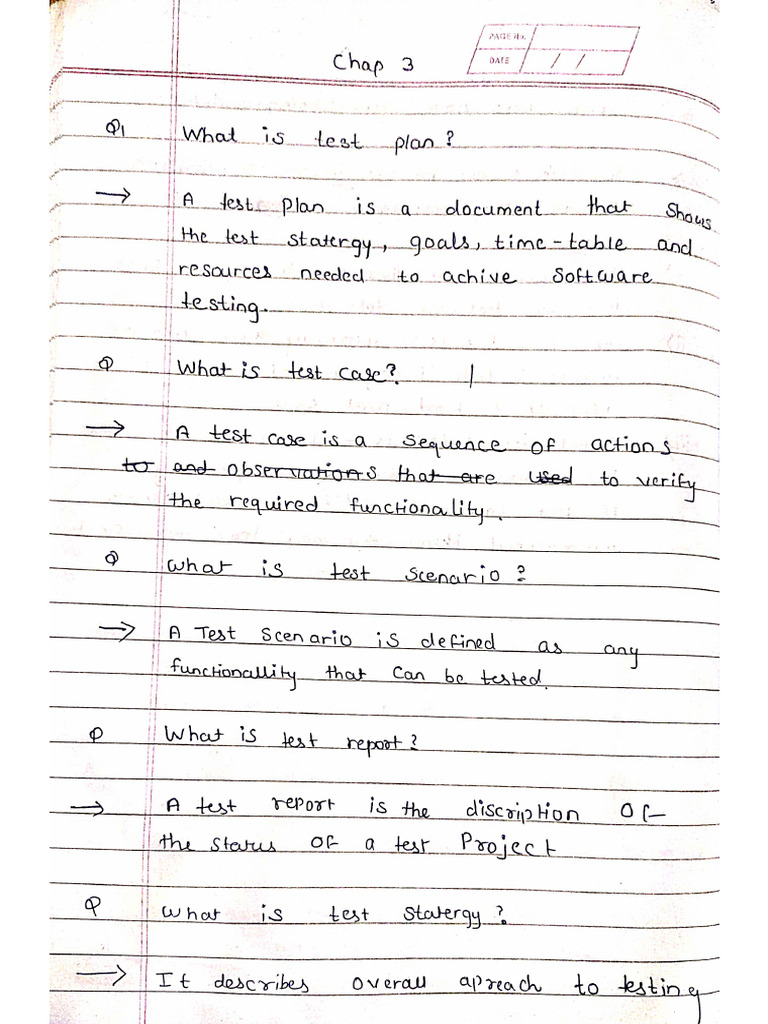 Chap 3
PAGE No.
DATE / /
Q1 What is test plan?
→ A test plan is a document that shows
the test statergy, goals, time-table and
resources needed to achive software
testing.
Q What is test case?
→ A test case is a sequence of actions
to and observations that are used to verify
the required functionality.
Q What is test scenario?
→ A Test scenario is defined as any
functionallity that can be tested.
Q What is test report?
→ A test report is the discription of
the status of a test Project
Q What is test statergy?
→ It describes overall apreach to testing